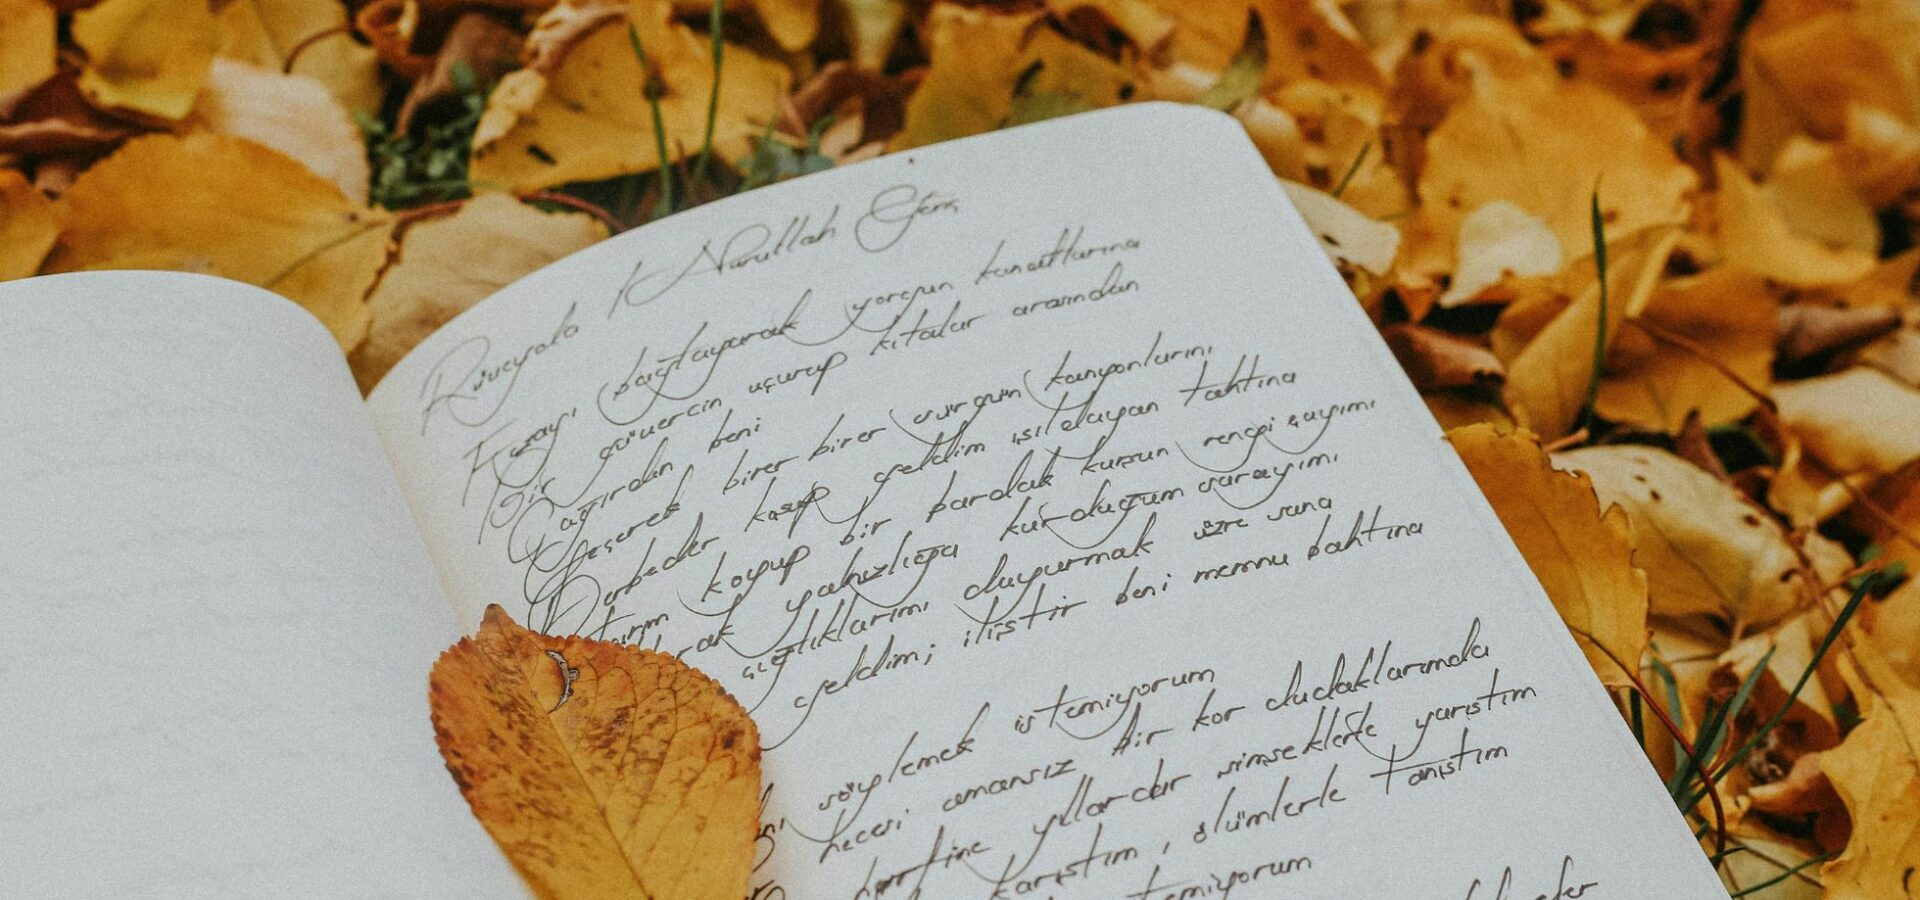 Rüveyda / Nurullah Genç
Fuzayı bağlayarak yorgun kanatlarına
Bir güvercin uçurup kıtalar arasından
Çağırdın beni
Geçerek birer birer sürgün kanyonlarını
Derbeder koşup geldim ışıldayan tahtına
koyup bir bardak kurşun rengi çayımı
yalnızlığa kurduğum sarayımı
çığlıklarımı duyurmak üzre sana
geldim; iliştir beni memnu bahtına
söylemek istemiyorum
hecesi amansız bir kor dudaklarımda
harfine yıllardır şimşeklerle yarıştım
karıştım, ölümlerle tanıştım